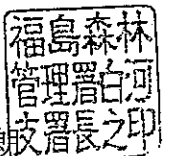 福島森林
管理署白河
支署長之印